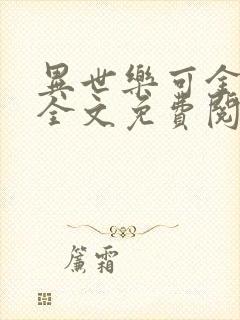 異世樂可全
全文免費閱
簾霜